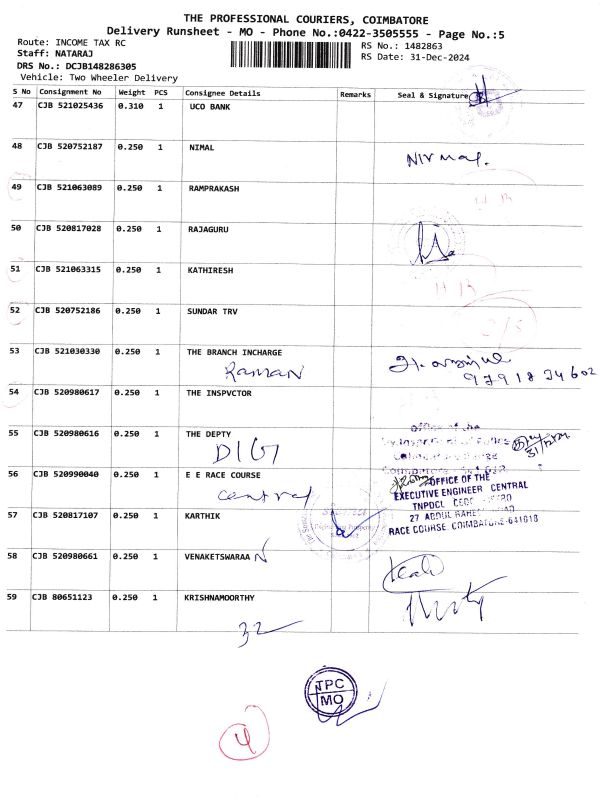 THE PROFESSIONAL COURIERS, COIMBATORE
Delivery Runsheet - MO - Phone No.:0422-3505555 - Page No.:5
Route: INCOME TAX RC
RS No.: 1482863
Staff: NATARAJ
RS Date: 31-Dec-2024
DRS No.: DCJB148286305
Vehicle: Two Wheeler Delivery
S No Consignment No Weight PCS Consignee Details Remarks Seal & Signature
47 CJB 521025436 0.310 1 UCO BANK
48 CJB 520752187 0.250 1 NIMAL
NIrmal.
49 CJB 521063089 0.250 1 RAMPRAKASH
50 CJB 520817028 0.250 1 RAJAGURU
51 CJB 521063315 0.250 1 KATHIRESH
52 CJB 520752186 0.250 1 SUNDAR TRV
2/5
53 CJB 521030330 0.250 1 THE BRANCH INCHARGE
Raman
54 CJB 520980617 0.250 1 THE INSPVCTOR
Office of the
55 CJB 520980616 0.250 1 THE DEPTY
DIG
56 CJB 520990040 0.250 1 E E RACE COURSE
central
OFFICE OF THE
EXECUTIVE ENGINEER CENTRAL
TNPDCL
RACE COURSE, COIMBATORE-641018
57 CJB 520817107 0.250 1 KARTHIK
58 CJB 520980661 0.250 1 VENAKETSWARAA N
59 CJB 80651123 0.250 1 KRISHNAMOORTHY
32
TPC
MO
4